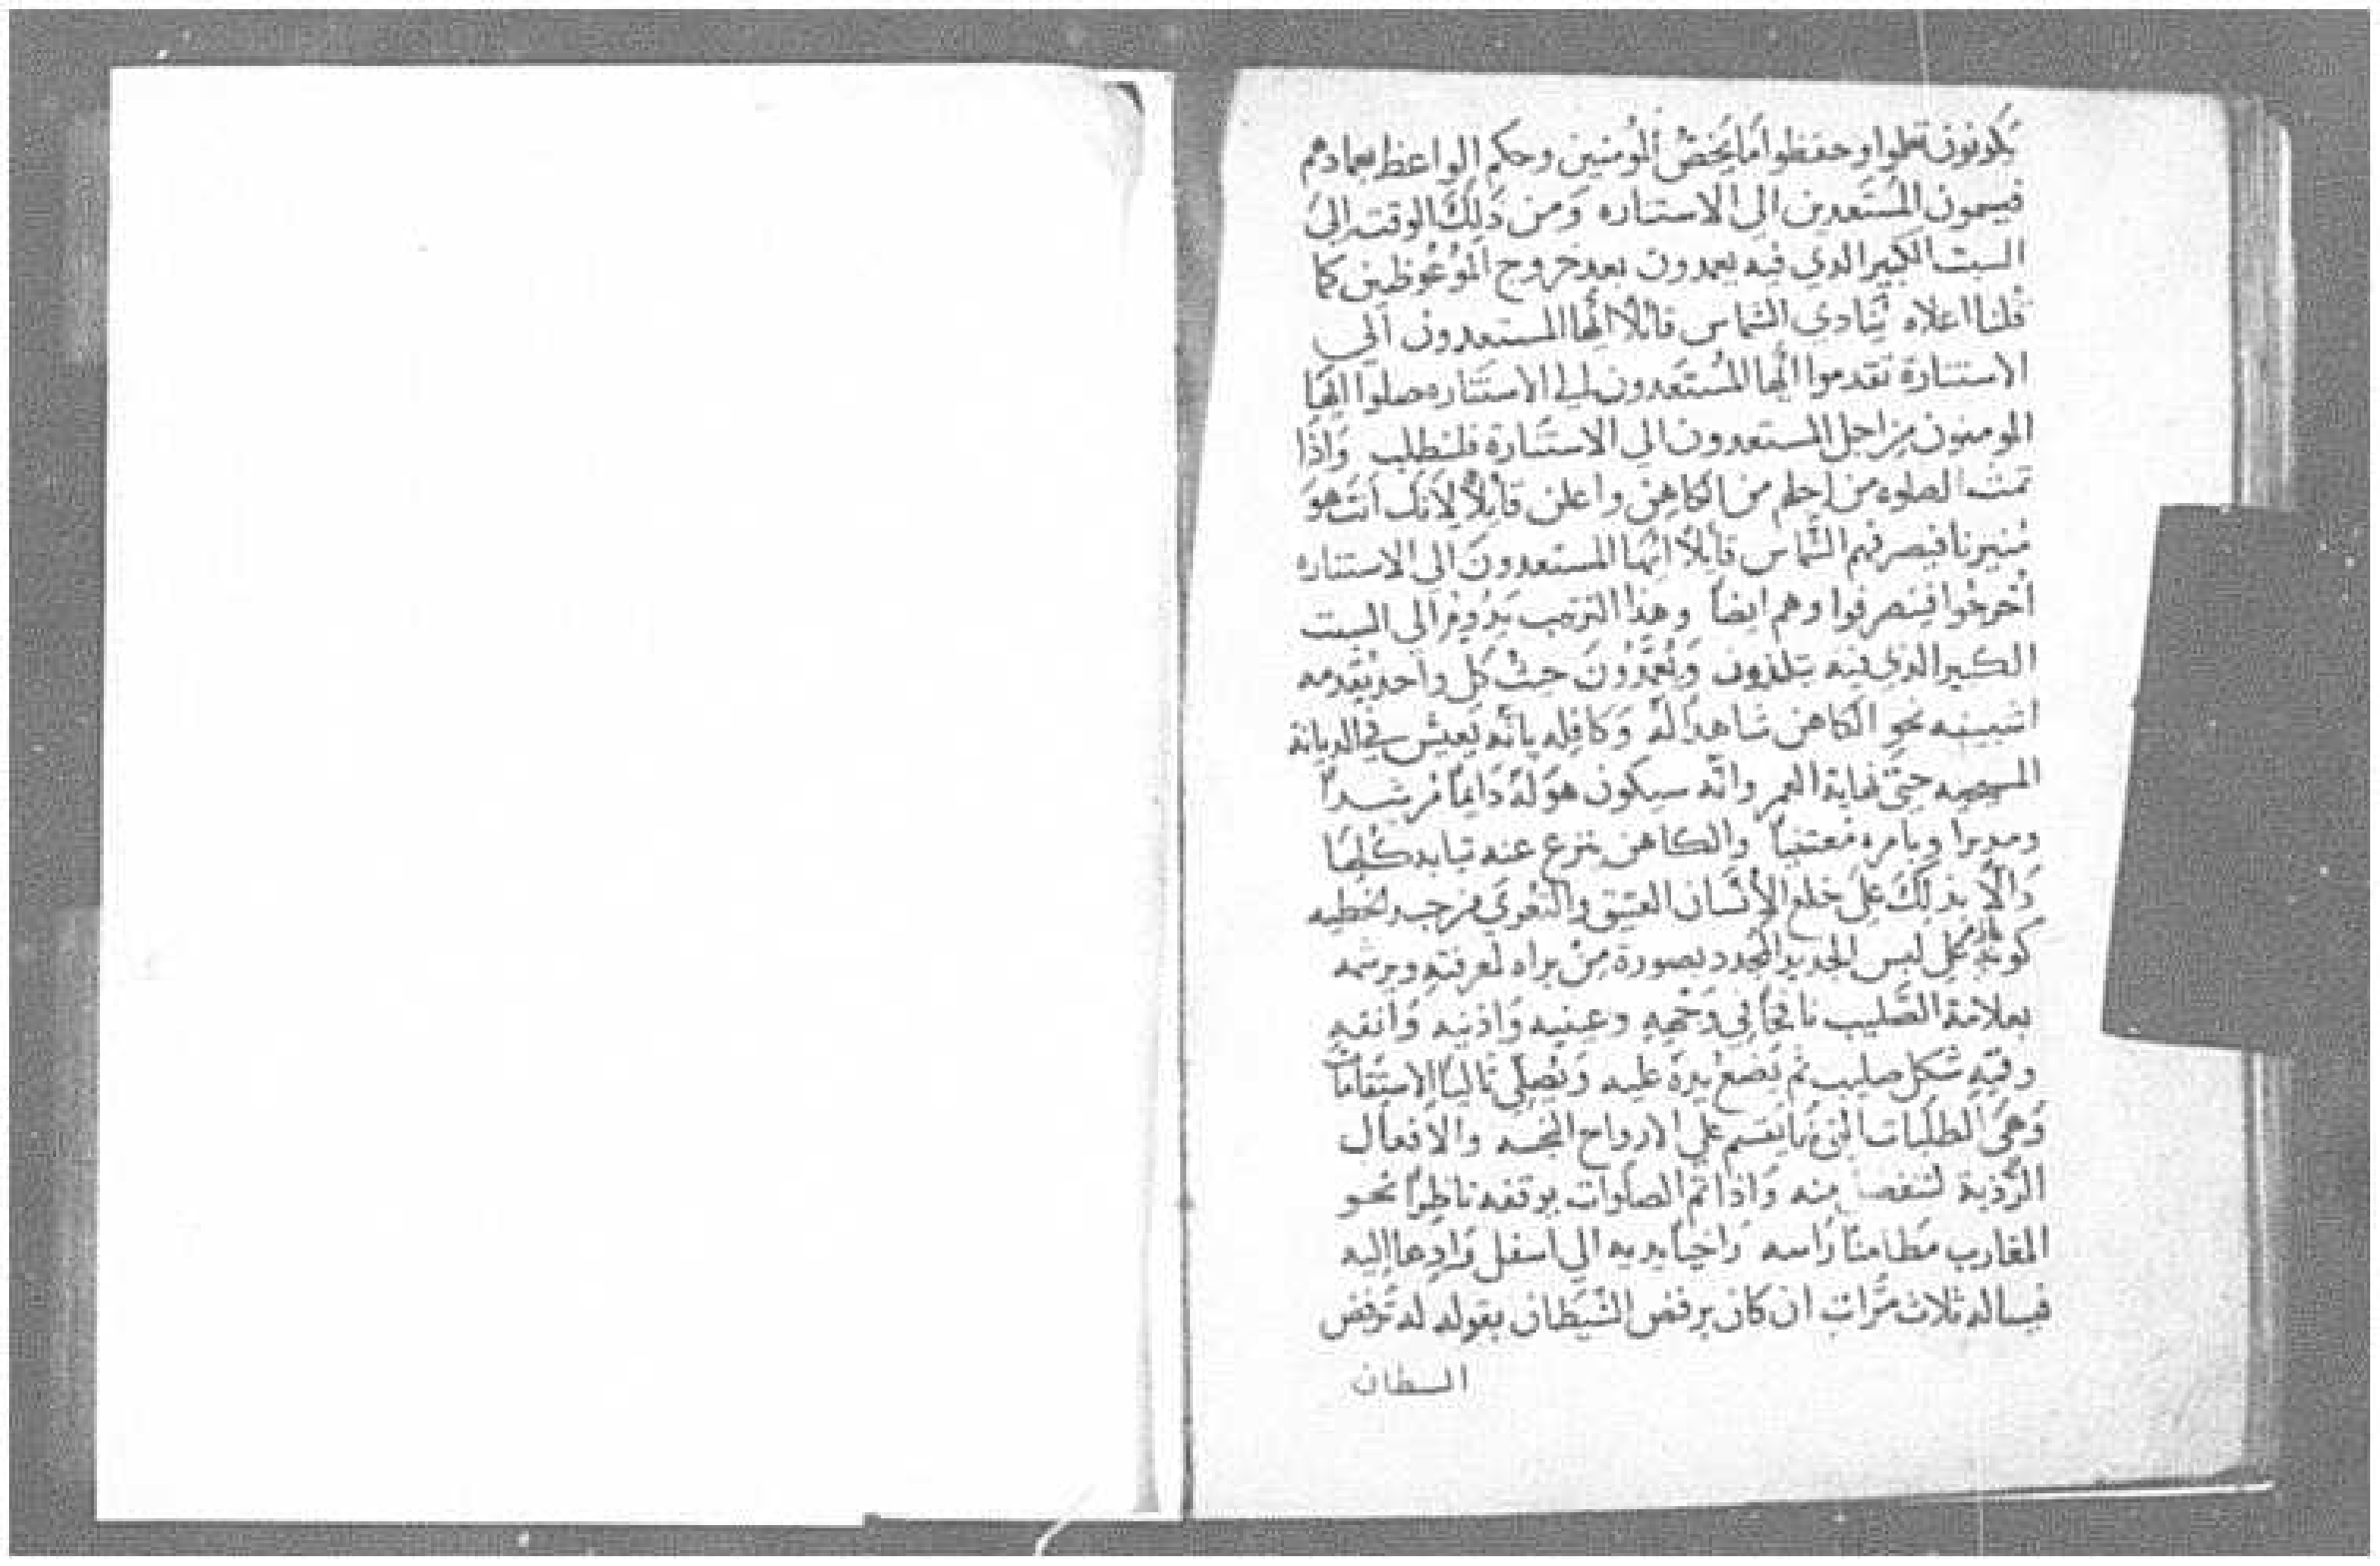 يكونون تعلموا وحفظوا ما يخص المومنين وحكم الواعظ بعمادهم
فيسمون المستعدين الى الاستناره ومن ذلك الوقت الى
السبت الكبير الدي فيه يعمدون بعد خروج الموعوظين كما
قلنا اعلاه ينادي الشماس قائلاً ايها المستعدون الي
الاستنارة تقدموا ايها المستعدون الي الاستناره صلوا ايها
المومنون من اجل المستعدون الي الاستنارة فلنطلب واذا
تمت الصلوه من اجلهم من الكاهن واعلن قايلاً لانك انت هو
منيرنا فيصرفهم الشماس قايلاً ايها المستعدون الي الاستناره
اخرجوا فينصرفوا وهم ايضاً وهذا الترتيب يدوم الي السبت
الكبير الدي فيه يتلدون ويعمدون حيث كل واحد يقدمه
اشبينه نحو الكاهن شاهداً له وكافله بانه يعيش في الديانة
المسيحيه حتى نهاية العمر وانه سيكون هو له دايماً مرشداً
ومدبرا وبامره معتنياً والكاهن ينزع عنه تيابه كلها
دالاً بذلك على خلع الانسان العتيق والتعري من جسد الخطيه
كونه لبس الجديد المجدد بصورة من براه لمعرفته ويرشمه
بعلامة الصليب نافخاً في وجهه وعينيه واذنيه وانفه
وفيه شكل صليب ثم يضع يده عليه ويصلي تالياً الاستقامات
وهي الطلبات التي بها يقسم علي الارواح النجسه والافعال
الردية لتنفصل منه واذا تم الصلوات يوقفه ناظراً نحو
المغارب مطامناً راسه راخياً يديه الي اسفل وادعا اليه
فيساله ثلاث مرات ان كان يرفض الشيطان بقوله له ترفض
السطان